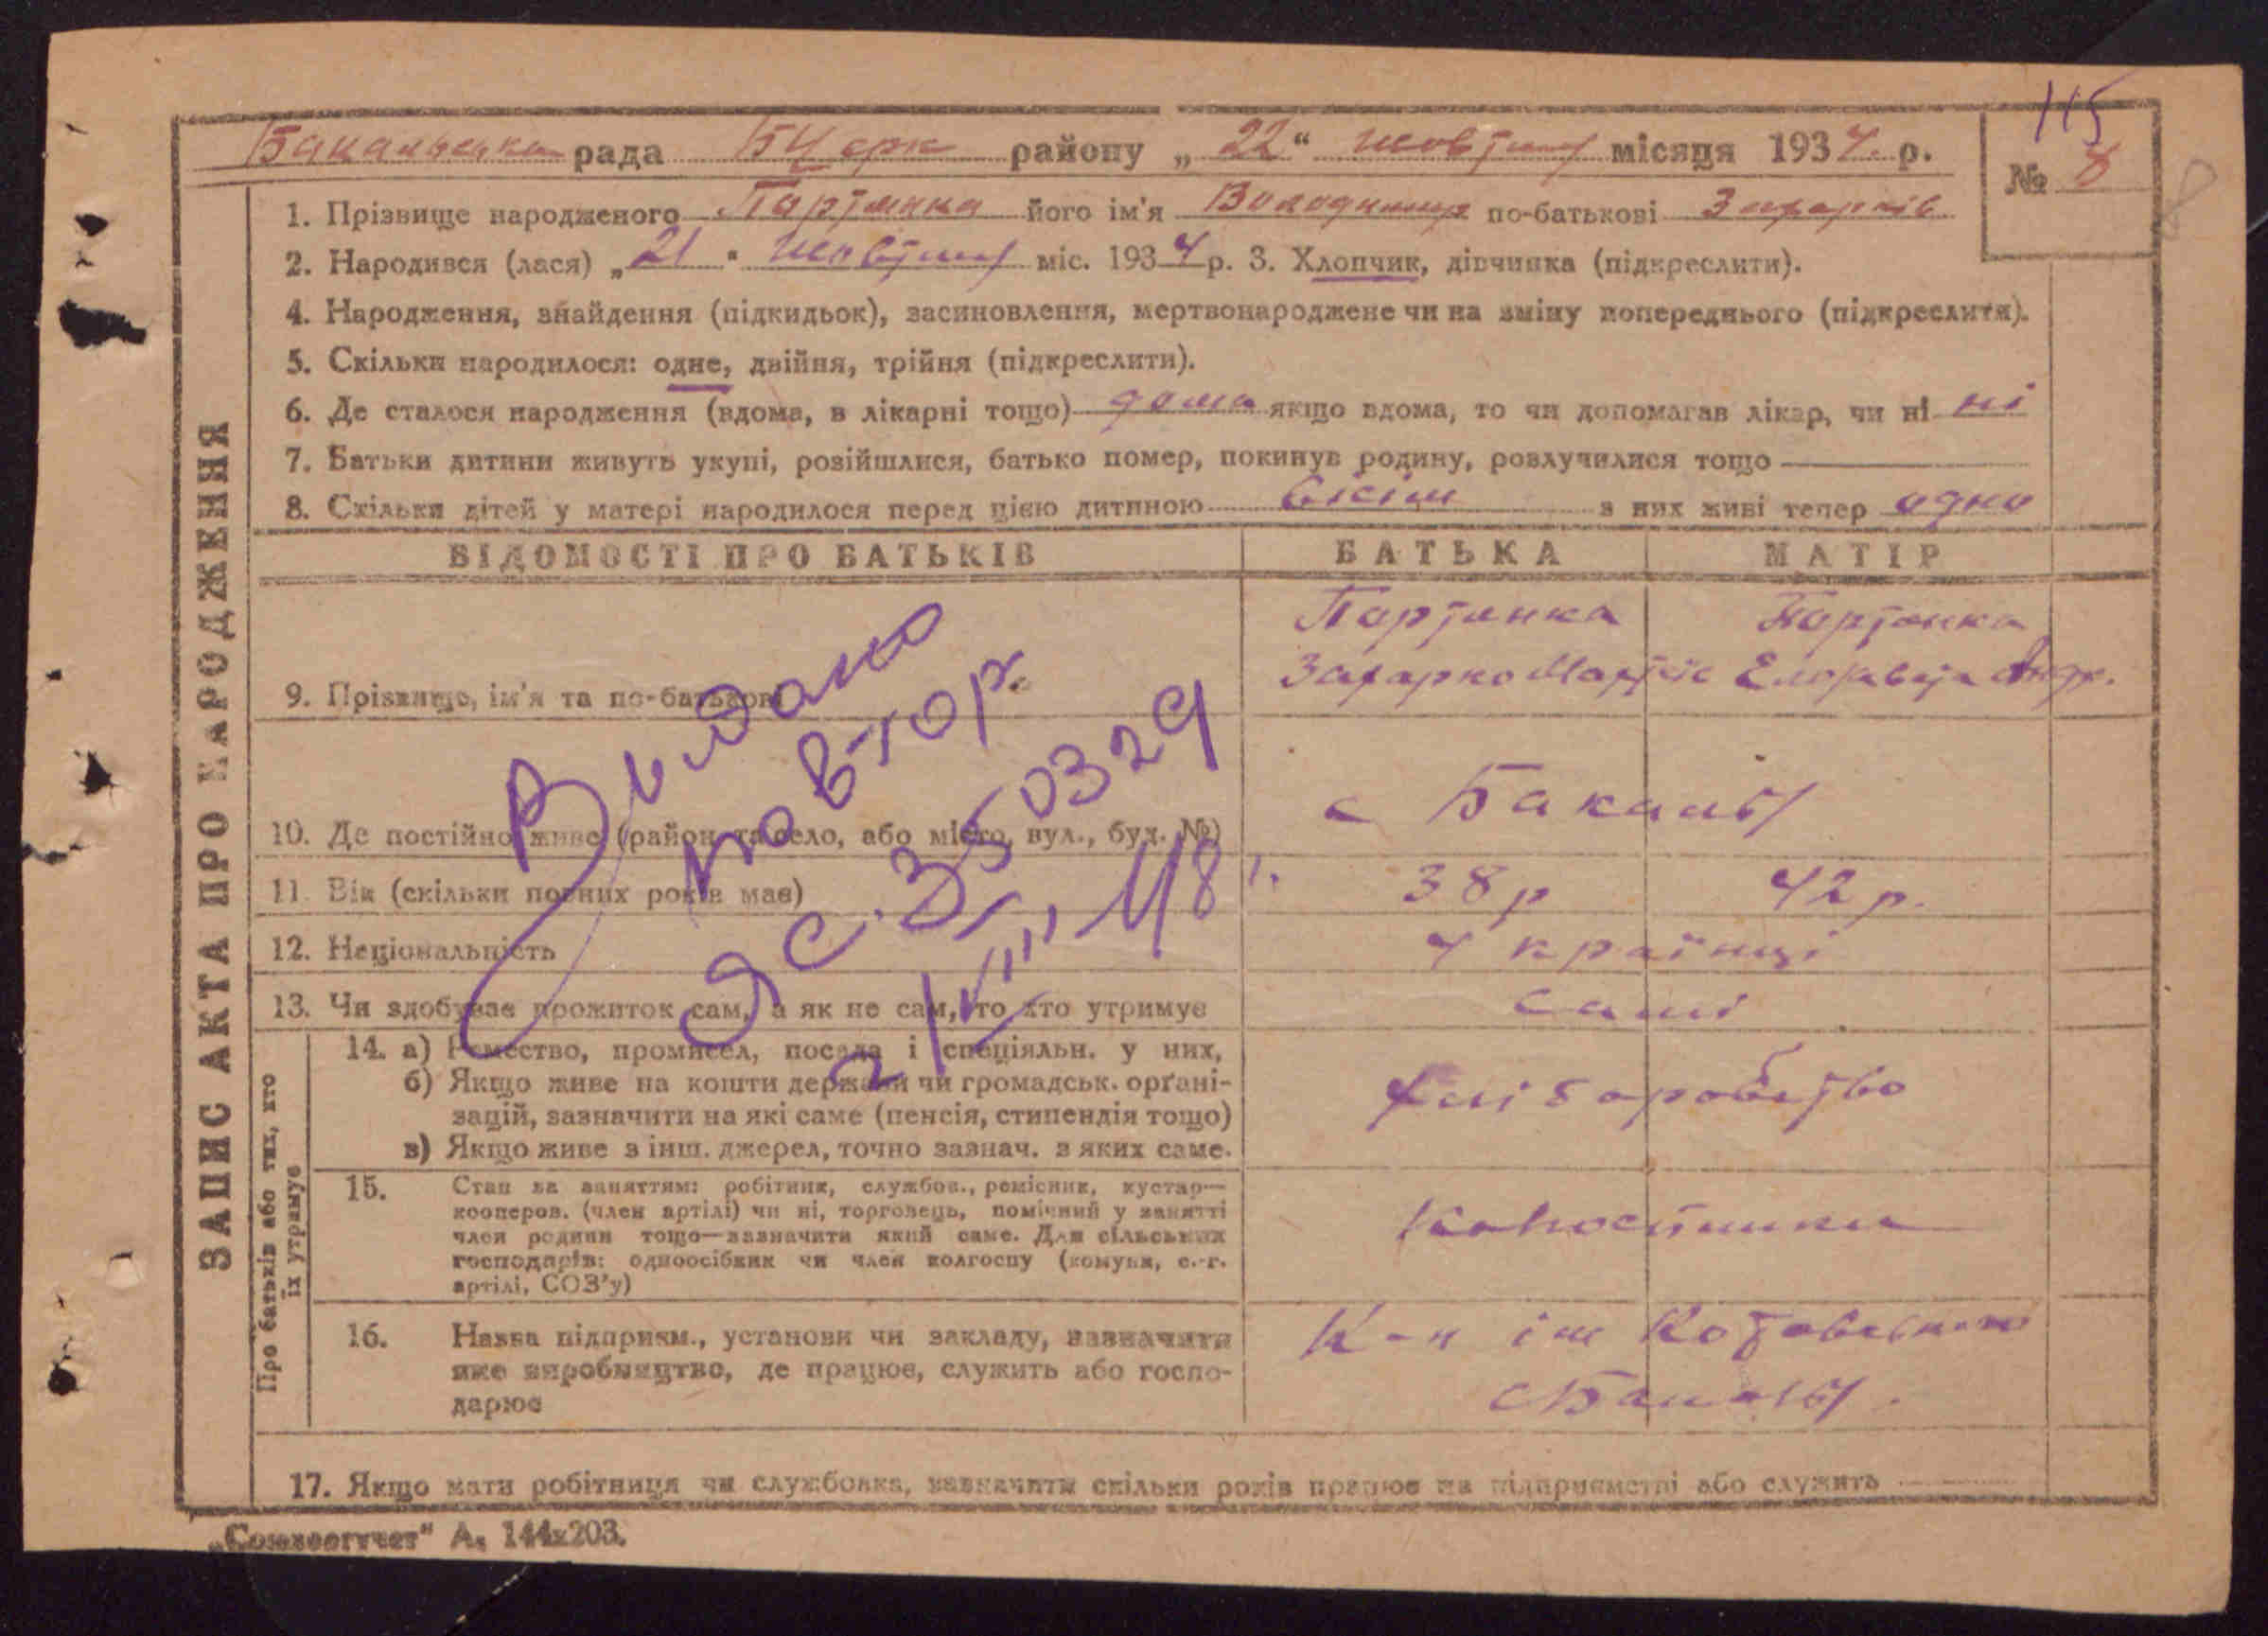 115
Бакальська рада БЦерк району „ 22 “ жовтня місяця 1934 р. № 8
8
1. Прізвище народженого Партинка його ім'я Володимир по-батькові Захарків
2. Народився (лася) „ 21 " жовтня міс. 1934 р. 3. Хлопчик, дівчинка (підкреслити).
4. Народження, знайдення (підкидьок), засиновлення, мертвонароджене чи на зміну попереднього (підкреслити).
5. Скільки народилося: одне, двійня, трійня (підкреслити).
6. Де сталося народження (вдома, в лікарні тощо) дома якщо вдома, то чи допомагав лікар, чи ні ні
7. Батьки дитини живуть укупі, розійшлися, батько помер, покинув родину, розлучилися тощо —
8. Скільки дітей у матері народилося перед цією дитиною вісім з них живі тепер одно
ЗАПИС АКТА ПРО НАРОДЖЕННЯ
ВІДОМОСТІ ПРО БАТЬКІВ БАТЬКА МАТІР
Партинка Партинка
9. Прізвище, ім'я та по-батькові Захарко Елизавета Андр.
10. Де постійно живе (район та село, або місто, вул., буд. №) с Бакали
11. Вік (скільки повних років має) 38 р 42 р.
12. Національність Українці
13. Чи здобуває прожиток сам, а як не сам, то хто утримує самі
Про батьків або тих, хто їх утримує
14. а) Ремество, промисел, посада і спеціяльн. у них,
б) Якщо живе на кошти держави чи громадськ. орґані-
зацій, зазначити на які саме (пенсія, стипендія тощо)
в) Якщо живе з інш. джерел, точно зазнач. з яких саме.
хліборобство
15. Стан за заняттям: робітник, службов., ремісник, кустар—
кооперов. (член артілі) чи ні, торговець, помічний у занятті
член родини тощо—зазначити який саме. Для сільських
господарів: одноосібник чи член колгоспу (комуни, с.-г.
артілі, СОЗ'у)
16. Назва підприєм., установи чи закладу, зазначити
яке виробництво, де працює, служить або госпо-
дарює
К-п ім Котовського
с Бакали.
17. Якщо мати робітниця чи службовка, зазначити скільки років працює на підприємстві або служить —
Видано
повтор.
350329
„Союзоргучет" А, 144x203.